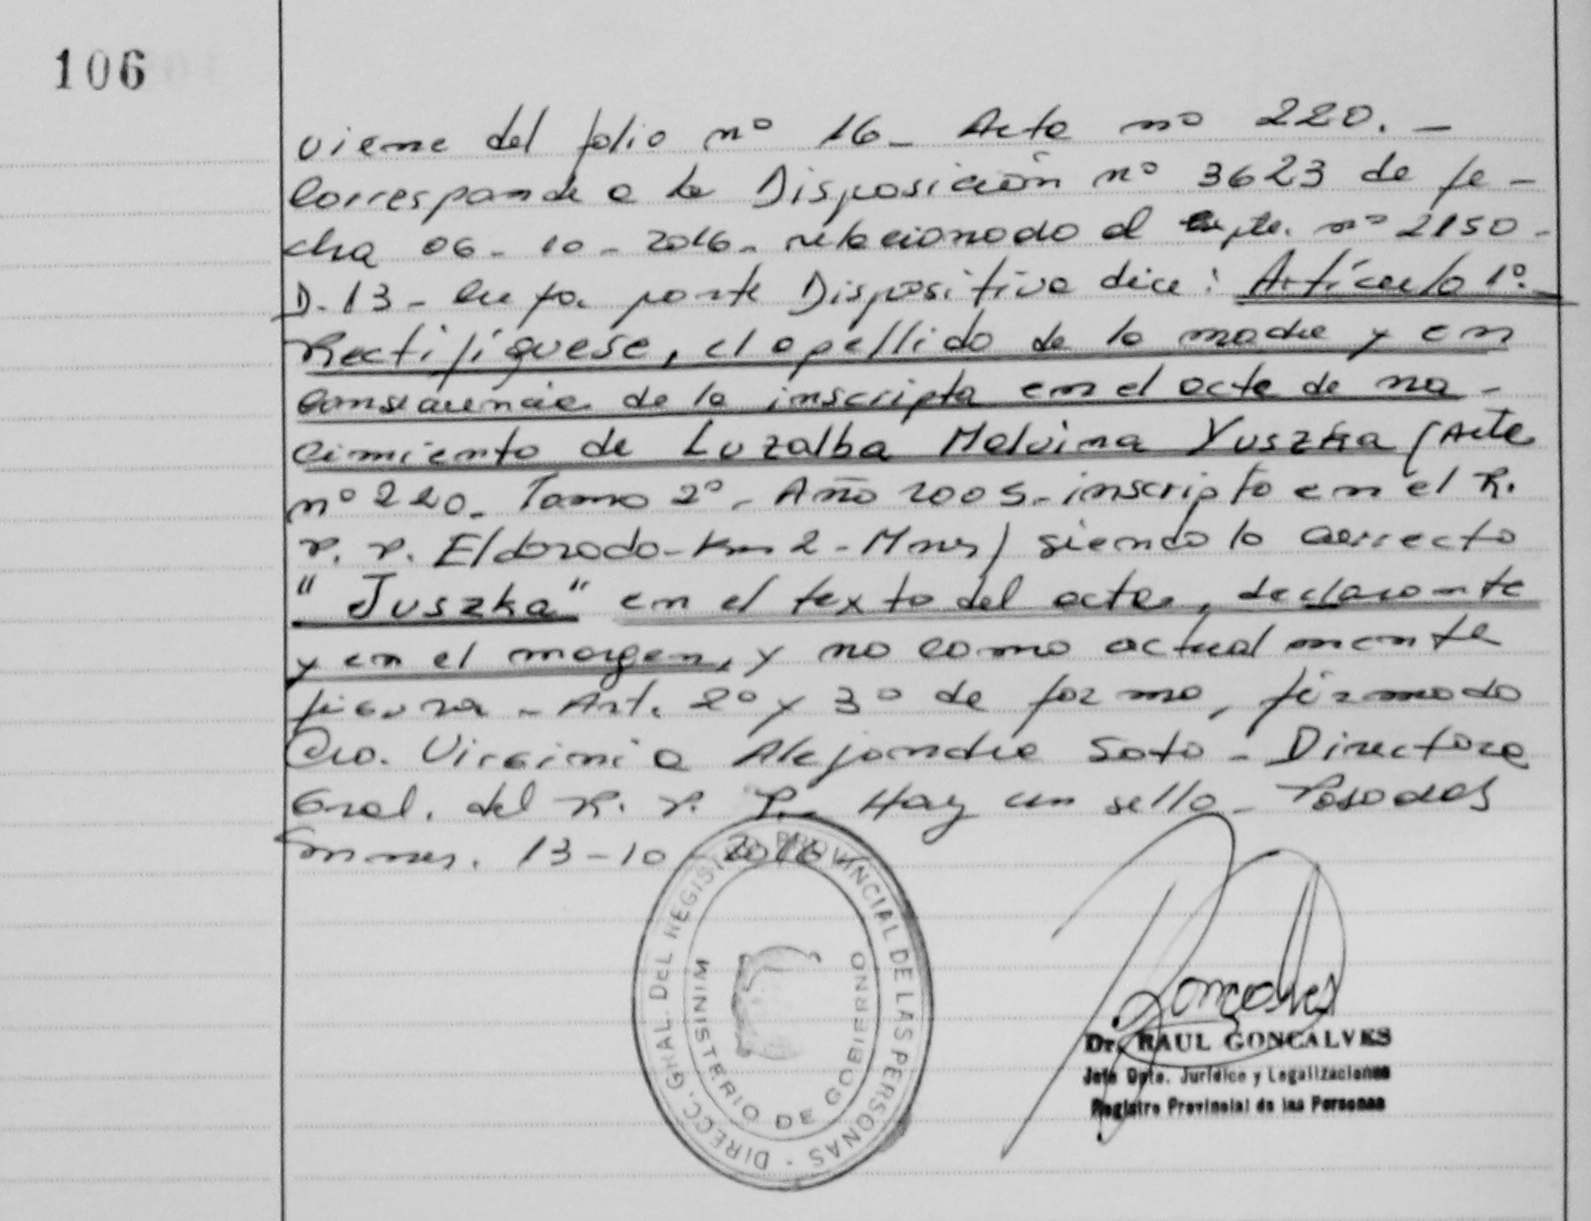 106
viene del folio nº 16_ Acta nº 220._
Corresponde a la Disposición nº 3623 de fe-
cha 06-10-2016_ relacionado al Expte. nº 2150-
D-13- cuya parte Dispositiva dice: Artículo 1º-
Rectifíquese, el apellido de la madre y en
consecuencia de la inscripta en el acta de na-
cimiento de Luzalba Malvina Yuszka (Acta
nº 220_ Tomo 2º_ Año 2005_ inscripto en el R.
P. P. Eldorado-Km 2-Mnes) siendo lo correcto
"Juszka" en el texto del acta, declarante
y en el margen, y no como actualmente
figura_ Art. 2º y 3º de forma, firmado
Cra. Virginia Alejandra Soto_ Directora
Gral. del R. P. P._ Hay un sello_ Posadas
Mnes. 13-10 2016
DIRECC. GRAL. DEL REGISTRO PROVINCIAL DE LAS PERSONAS -
MINISTERIO DE GOBIERNO
Goncalves
Dr. RAUL GONCALVES
Jefe Dpto. Jurídico y Legalizaciones
Registro Provincial de las Personas